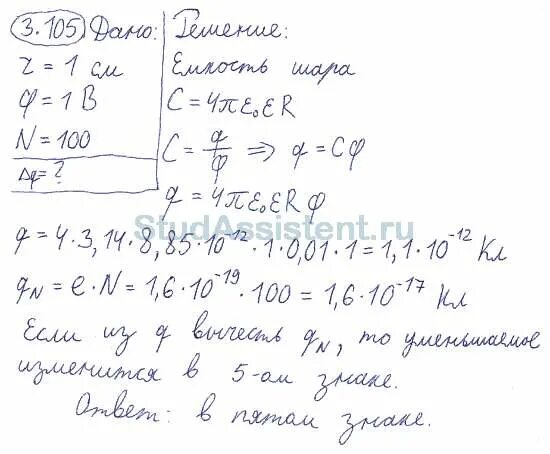 3.105 Дано: Решение:
r = 1 см Емкость шара
φ = 1 В C = 4πε₀εR
N = 100 C = q/φ ⇒ q = Cφ
Δq = ? q = 4πε₀εRφ
StudAssistent.ru
q = 4·3,14·8,85·10⁻¹²·1·0,01·1 = 1,1·10⁻¹² Кл
q_N = e·N = 1,6·10⁻¹⁹·100 = 1,6·10⁻¹⁷ Кл
Если из q вычесть q_N, то уменьшаемое
изменится в 5-ом знаке.
Ответ: в пятом знаке.